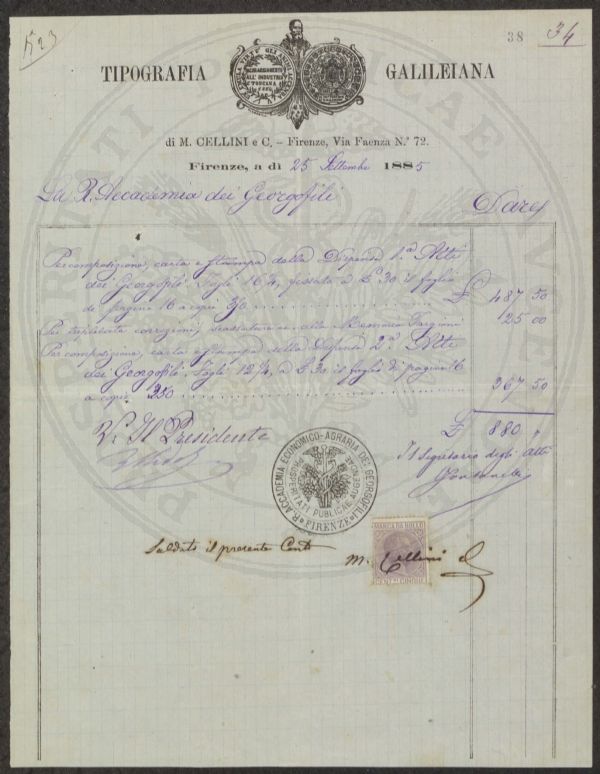 38 34
TIPOGRAFIA GALILEIANA
INCORAGGIAMENTO
ALL'INDUSTRIA
TOSCANA
di M. CELLINI e C. – Firenze, Via Faenza N.° 72.
Firenze, a dì 25 Settembre 1885
La R. Accademia dei Georgofili Dare
Per composizione, carta e stampa della Dispensa 1.a Atti
dei Georgofili Fogli 16 1/4, fissata a L. 30 il foglio
di pagine 16 a copie £ 487 50
Per triplicate correzioni, alla Memoria Targioni 25 00
Per composizione, carta e stampa della Dispensa 2.a Atti
dei Georgofili, Fogli 12 1/4 a £ 30 il foglio di pagine 16
a copie 350 367 50
£ 880 "
V. Il Presidente
Il Segretario degli Atti
R. ACCADEMIA ECONOMICO-AGRARIA DEI GEORGOFILI
PROSPERITATI PUBLICAE AUGENDAE
FIRENZE
MARCA DA BOLLO
CENT.MI CINQUE
Saldato il presente Conto M. Cellini